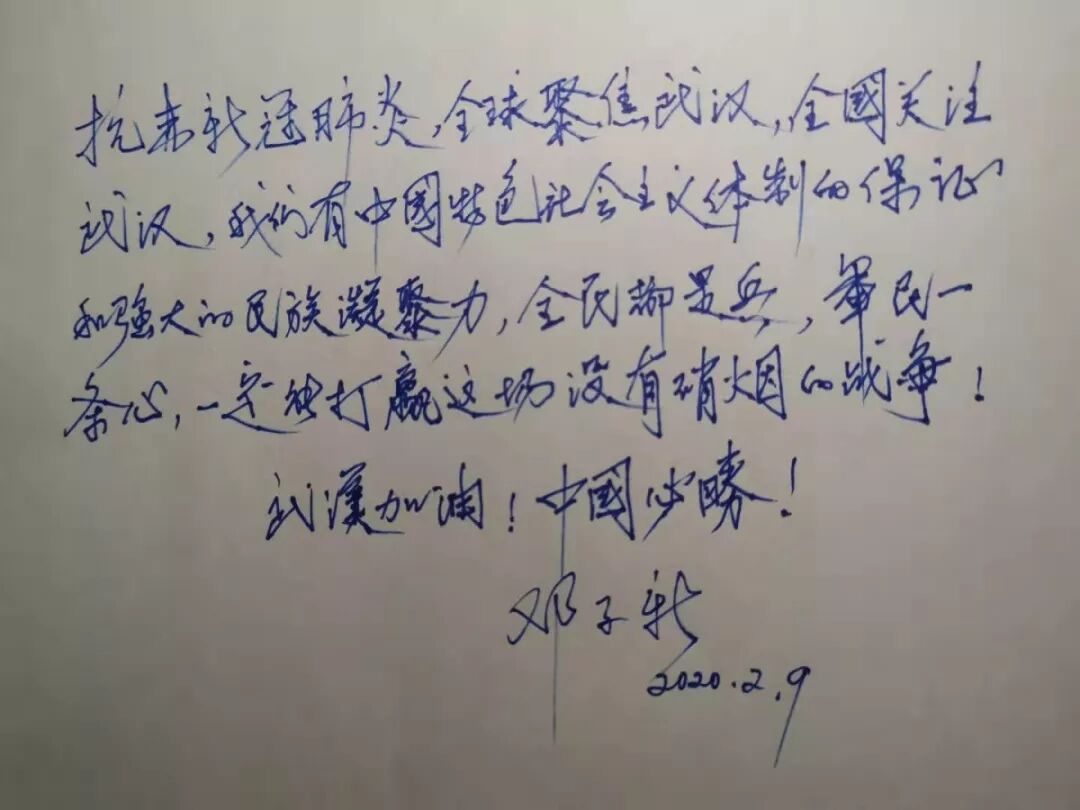 抗击新冠肺炎,全球聚焦武汉,全國关注
武汉,我们有中國特色社会主义体制的保证
和强大的民族凝聚力,全民都是兵,軍民一
条心,一定能打赢这场没有硝烟的战争!
武漢加油!中國必勝!
邓子新
2020.2.9